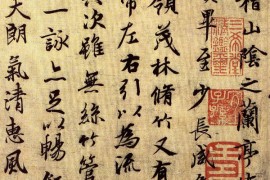 稽山陰之蘭亭
畢至少長咸
領茂林脩竹又
帶左右引以為流
次雖無絲竹管
一詠亦足以暢敘
天朗氣清惠風